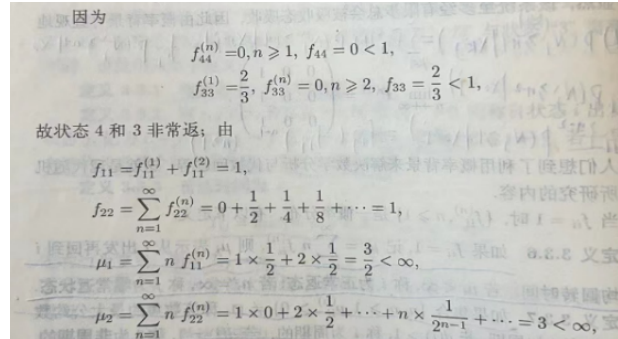 因为
f₄₄⁽ⁿ⁾=0,n⩾1, f₄₄=0<1,
f₃₃⁽¹⁾=2/3, f₃₃⁽ⁿ⁾=0,n⩾2, f₃₃=2/3<1,
故状态 4 和 3 非常返；由
f₁₁=f₁₁⁽¹⁾+f₁₁⁽²⁾=1,
f₂₂=∑ₙ₌₁^∞ f₂₂⁽ⁿ⁾=0+1/2+1/4+1/8+⋯=1,
μ₁=∑ₙ₌₁^∞ n f₁₁⁽ⁿ⁾=1×1/2+2×1/2=3/2<∞,
μ₂=∑ₙ₌₁^∞ n f₂₂⁽ⁿ⁾=1×0+2×1/2+⋯+n×1/2ⁿ⁻¹+⋯=3<∞,